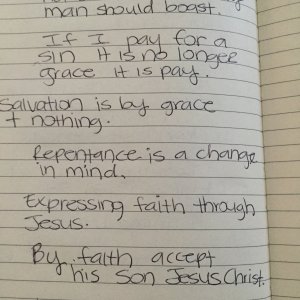 man should boast.
If I pay for a
sin it is no longer
grace it is pay.
Salvation is by grace
+ nothing.
Repentance is a change
in mind.
Expressing faith through
Jesus.
By faith accept
his Son Jesus Christ.